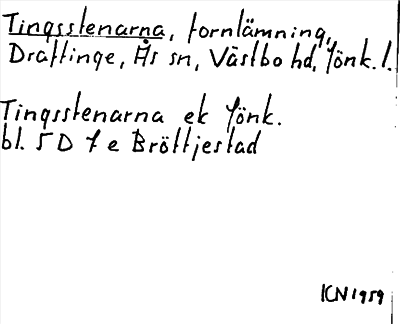 Tingsstenarna, fornlämning,
Draftinge, Ås sn, Västbo hd, Jönk. l.
Tingsstenarna ek Jönk.
bl. 5 D 7 e Bröttjestad
ICN 1959